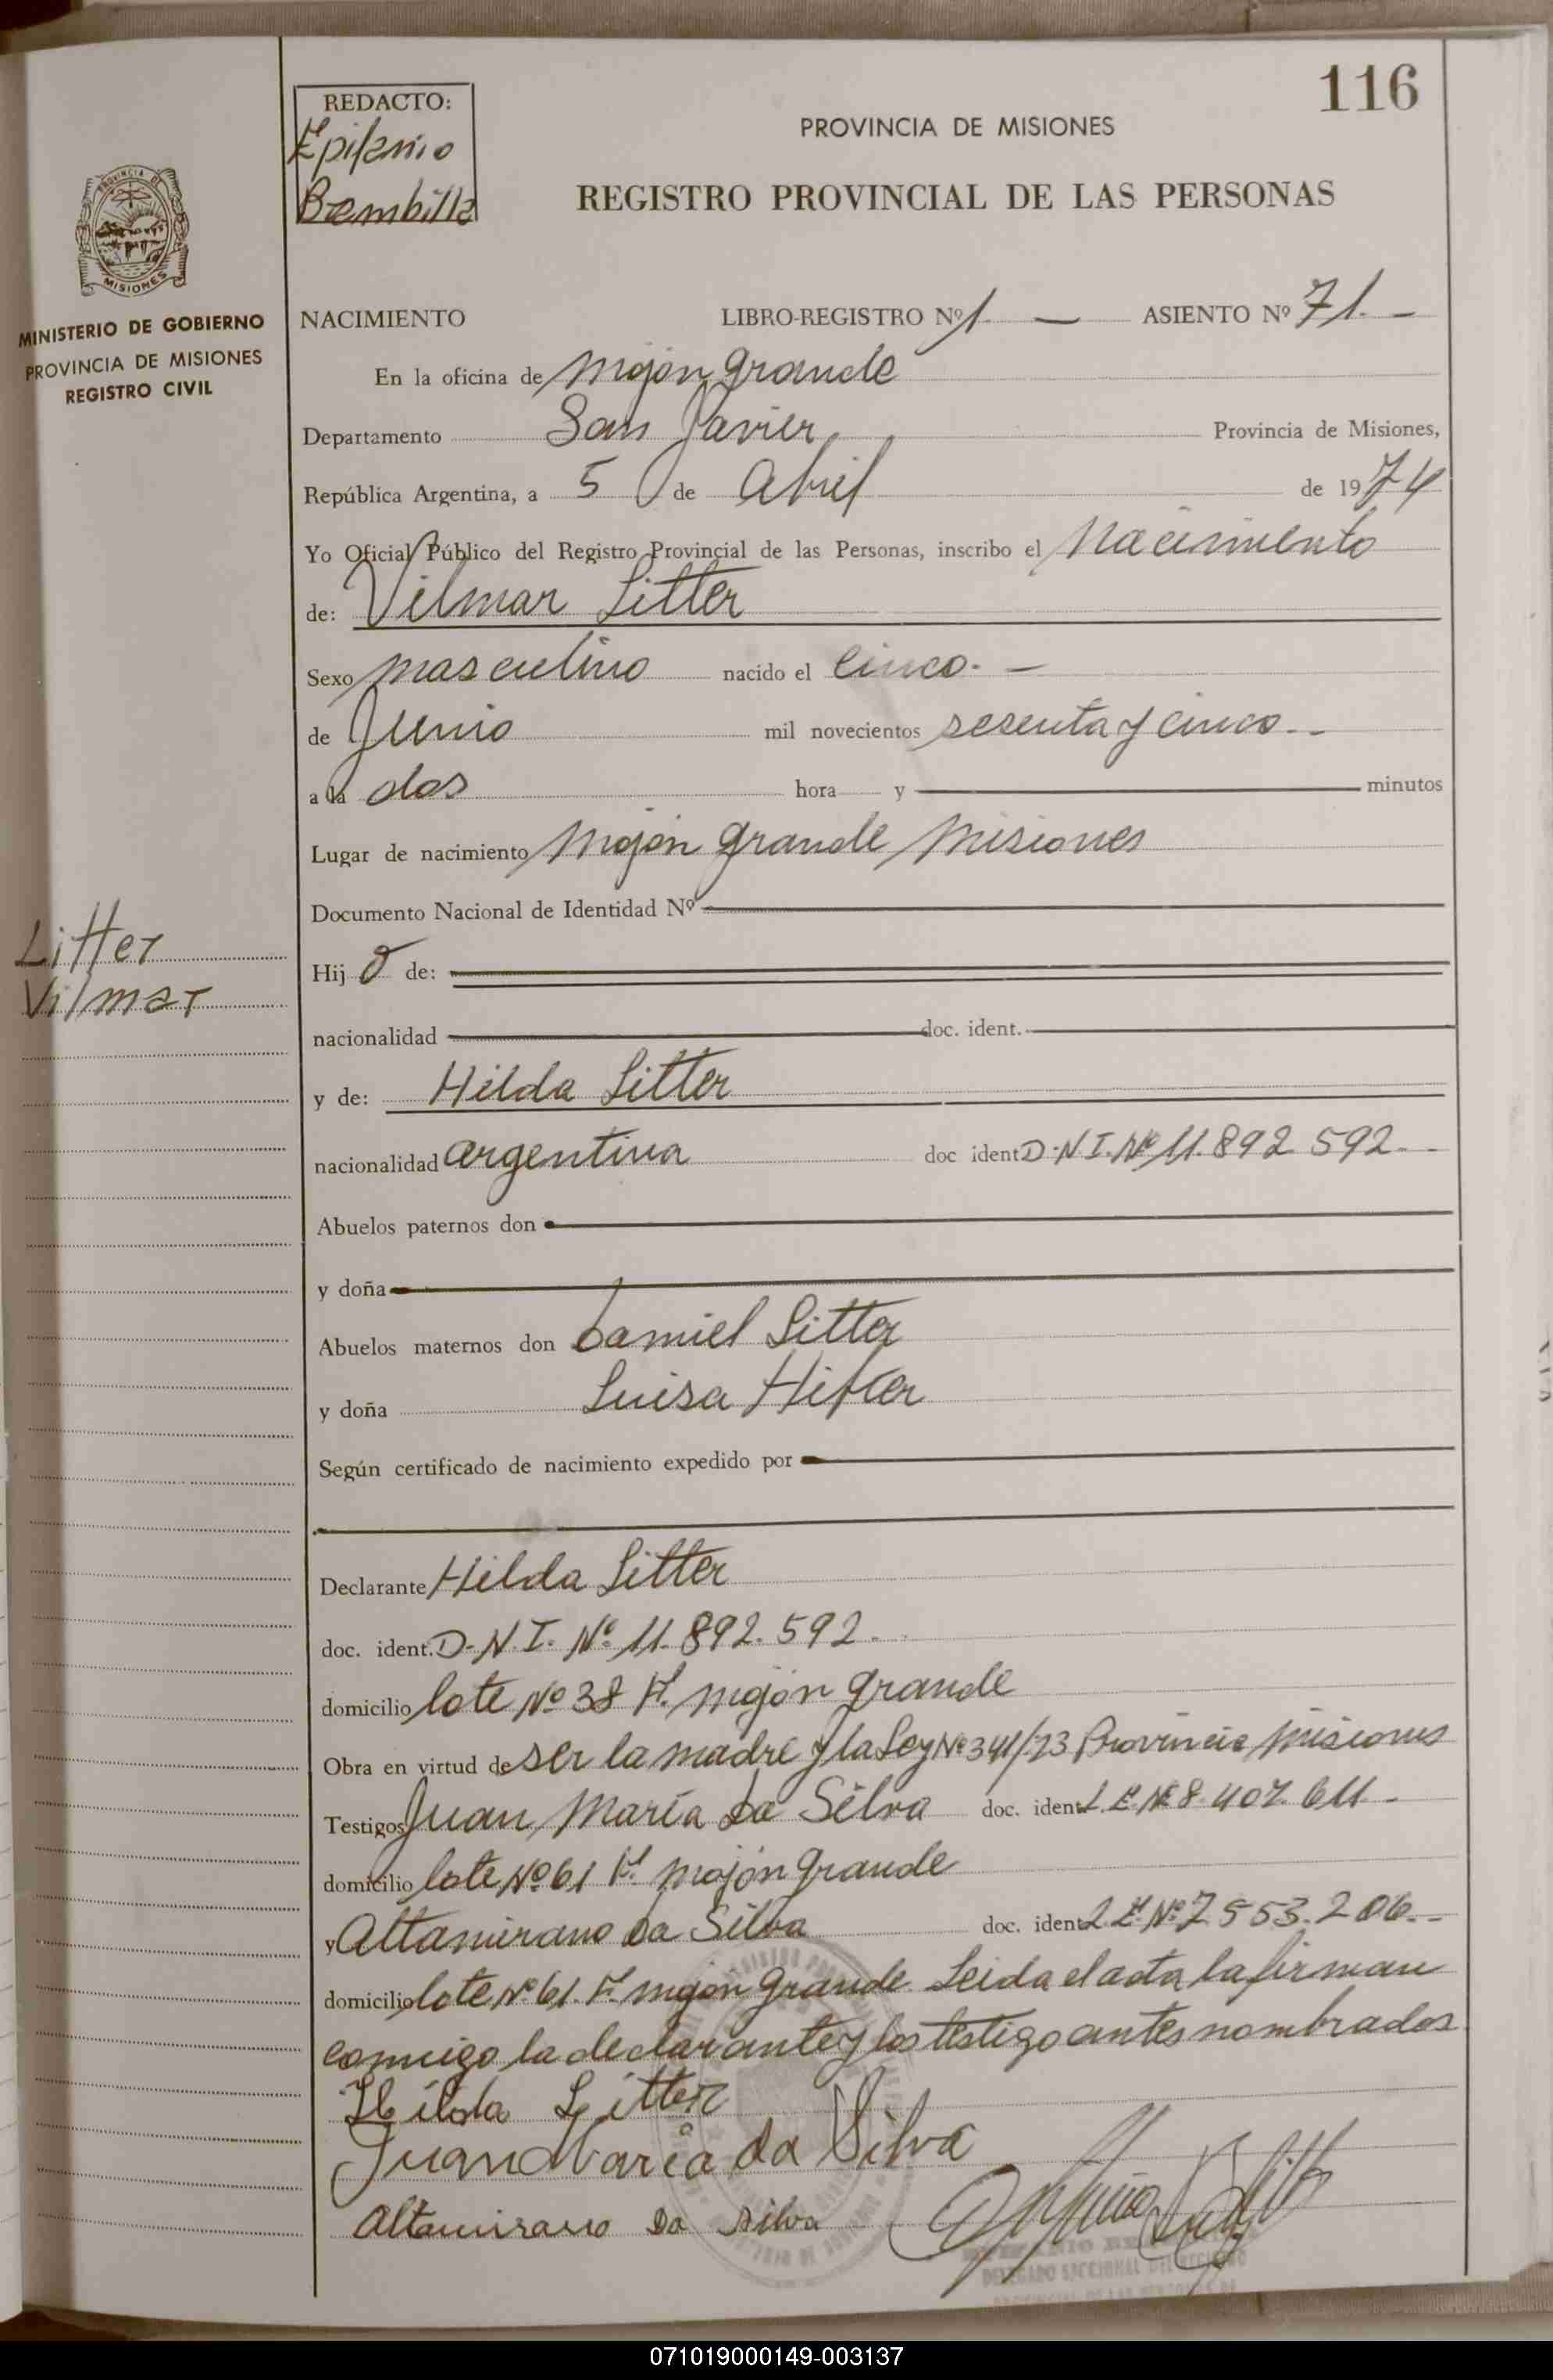 116
REDACTO:
Epifanio
Bembilla
PROVINCIA DE MISIONES
REGISTRO PROVINCIAL DE LAS PERSONAS
PROVINCIA DE
MISIONES
MINISTERIO DE GOBIERNO
PROVINCIA DE MISIONES
REGISTRO CIVIL
NACIMIENTO LIBRO-REGISTRO Nº 1. — ASIENTO Nº 71. -
En la oficina de Mojón grande
Departamento San Javier, Provincia de Misiones,
República Argentina, a 5 de Abril de 1974
Yo Oficial Público del Registro Provincial de las Personas, inscribo el Nacimiento
de: Vilmar Litter
Sexo masculino nacido el cinco. -
de Junio mil novecientos sesenta y cinco. -
a la dos hora y minutos
Lugar de nacimiento Mojón grande Misiones
Documento Nacional de Identidad Nº
Litter
Vilmar
Hij o de:
nacionalidad doc. ident.
y de: Hilda Litter
nacionalidad argentina doc ident D.N.I. Nº 11.892.592. -
Abuelos paternos don
y doña
Abuelos maternos don Daniel Litter
y doña Luisa
Según certificado de nacimiento expedido por
Declarante Hilda Litter
doc. ident. D.N.I. Nº 11.892.592.
domicilio lote Nº 38 Mojón grande
Obra en virtud de ser la madre y la Ley Nº 341/73 Provincia Misiones
Testigos Juan María Da Silva doc. ident L.E. Nº 8.407.611 -
domicilio lote Nº 61 Mojón grande
y Altamirano Da Silva doc. ident L.E. Nº 7.553.206. -
domicilio lote Nº 61. Mojón grande. Leida el acta la firman
conmigo la declarante y los testigo antes nombrados
Hilda Litter
Juan Maria da Silva
Altamirano Da Silva
071019000149-003137